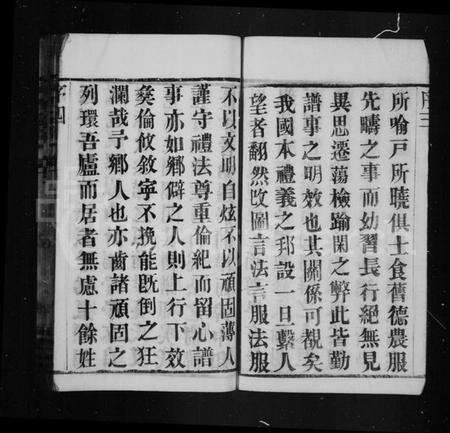 序三
所喻戶所曉俱士食舊德農服
先疇之事而幼習長行絕無見
異思遷蕩檢踰閑之弊此皆勤
譜事之明效也其關係可觀矣
我國本禮義之邦設一旦繫人
望者翻然改圖言法言服法服
不以文明自炫不以頑固薄人
謹守禮法尊重倫紀而留心譜
事亦如鄉僻之人則上行下效
彝倫攸敘寧不挽能既倒之狂
瀾哉予鄉人也亦齒諸頑固之
列環吾廬而居者無慮十餘姓
序四